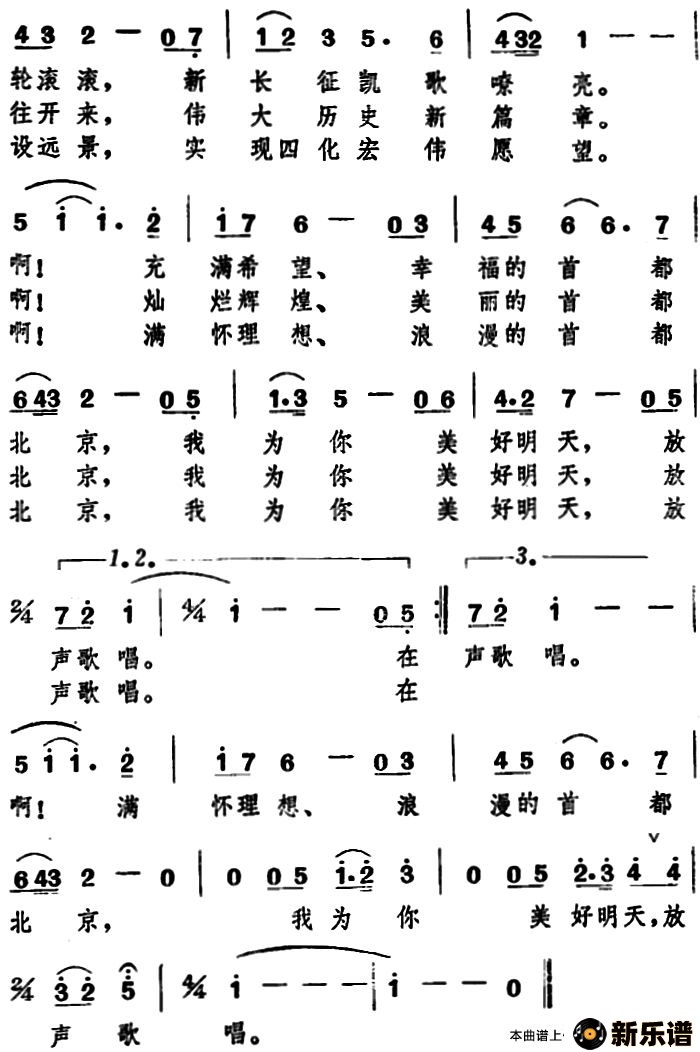 4 3 2 — 0 7 | 1 2 3 5. 6 | 4 3 2 1 — — |
轮滚滚， 新 长 征凯 歌 嘹 亮。
往开来， 伟 大 历史 新 篇 章。
设远景， 实 现四化宏 伟 愿 望。
5 1 1. 2 | 1 7 6 — 0 3 | 4 5 6 6. 7 |
啊！ 充 满希 望、 幸 福的 首 都
啊！ 灿 烂辉 煌、 美 丽的 首 都
啊！ 满 怀理 想、 浪 漫的 首 都
6 4 3 2 — 0 5 | 1. 3 5 — 0 6 | 4. 2 7 — 0 5 |
北 京， 我 为 你 美 好明 天， 放
北 京， 我 为 你 美 好明 天， 放
北 京， 我 为 你 美 好明 天， 放
1. 2. 3.
2/4 7 2 1 | 4/4 1 — — 0 5 :| 7 2 1 — — |
声歌 唱。 在 声歌 唱。
声歌 唱。 在
5 1 1. 2 | 1 7 6 — 0 3 | 4 5 6 6. 7 |
啊！ 满 怀理 想、 浪 漫的 首 都
6 4 3 2 — 0 | 0 0 5 1. 2 3 | 0 0 5 2. 3 4 4 |
北 京， 我 为 你 美 好明天，放
2/4 3 2 5 | 4/4 1 — — — | 1 — — 0 ‖
声 歌 唱。
本曲谱上· 新乐谱